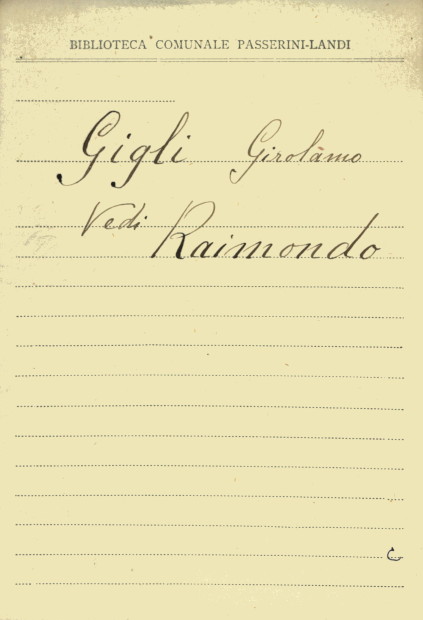 BIBLIOTECA COMUNALE PASSERINI-LANDI
Gigli Girolamo
Vedi Raimondo